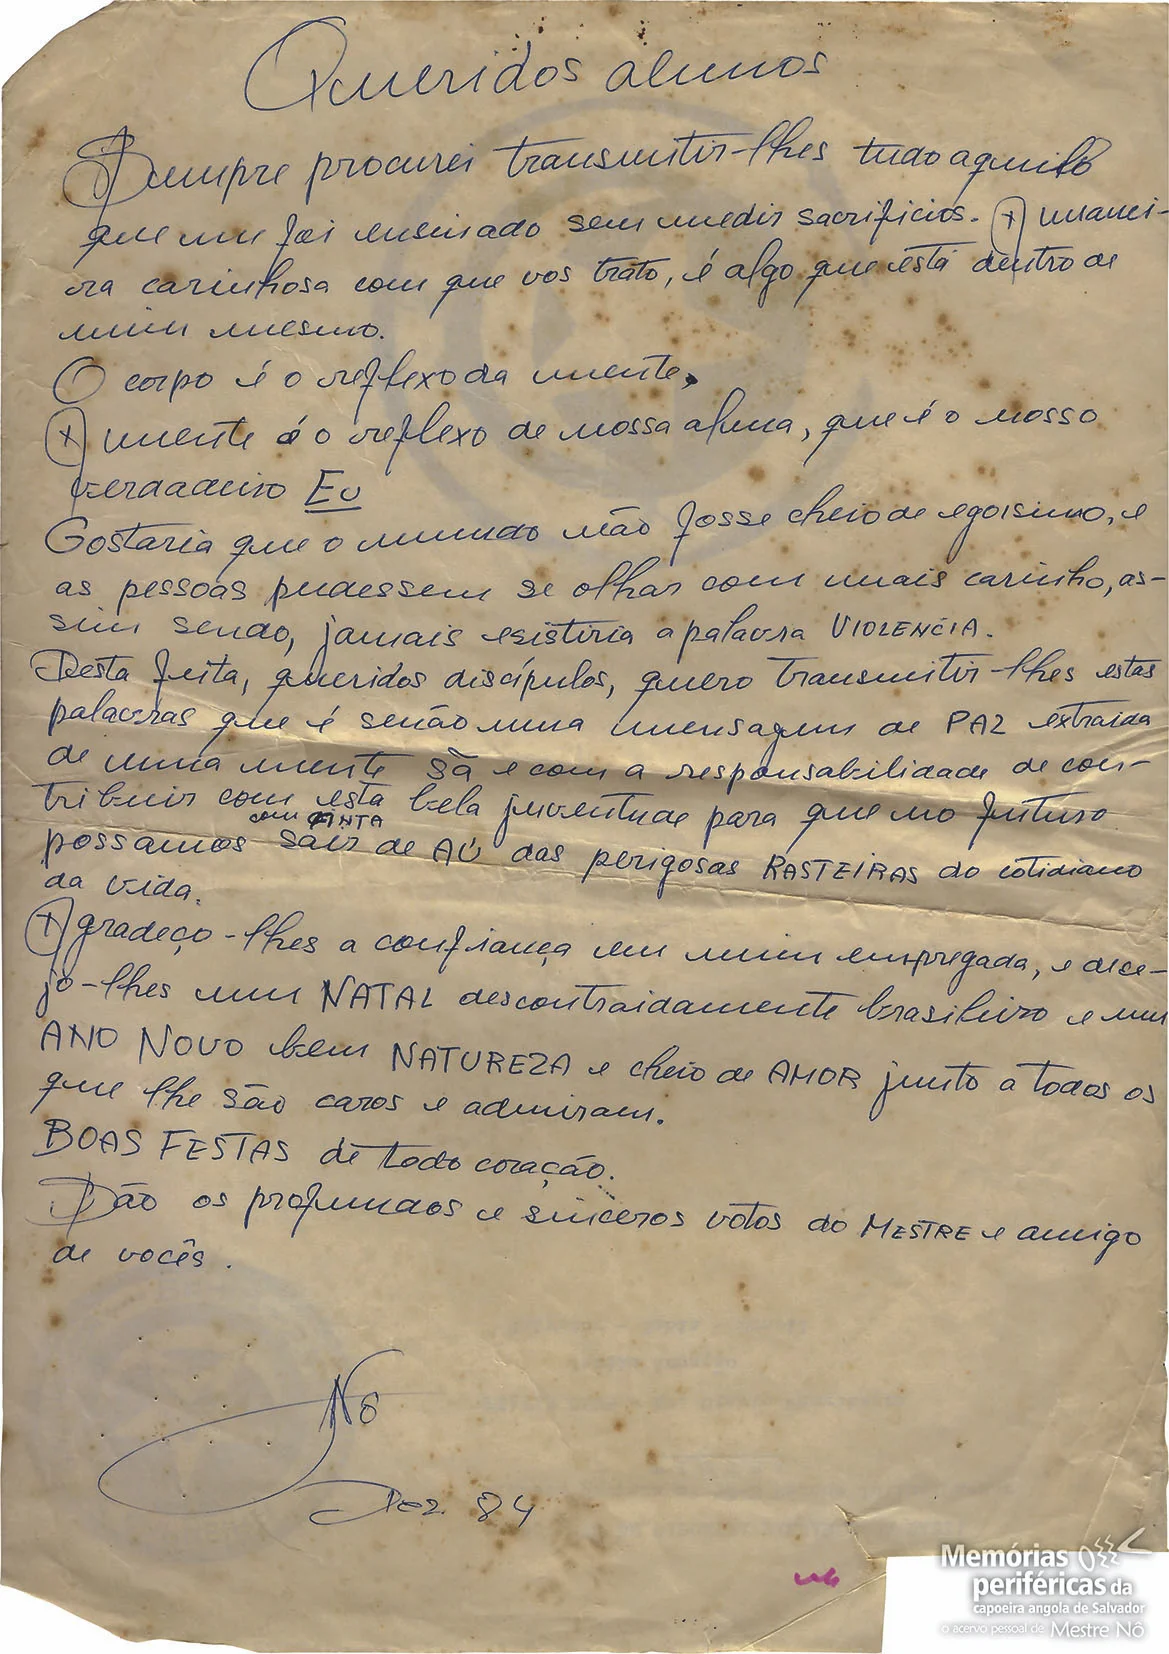 Queridos alunos
Sempre procurei transmitir-lhes tudo aquilo
que me foi ensinado sem medir sacrificios. A manei-
ra carinhosa com que vos trato, é algo que está dentro de
mim mesmo.
O corpo é o reflexo da mente,
A mente é o reflexo de nossa alma, que é o nosso
verdadeiro Eu
Gostaria que o mundo não fosse cheio de egoismo, e
as pessoas pudessem se olhar com mais carinho, as-
sim sendo, jamais esistiria a palavra VIOLENCIA.
Desta feita, queridos discípulos, quero transmitir-lhes estas
palavras que é senão uma mensagem de PAZ extraida
de uma mente sã e com a responsabilidade de con-
tribuir com esta bela juventude para que no futuro
com GINTA
possamos sair de AÚ das perigosas RASTEIRAS do cotidiano
da vida.
Agradeço-lhes a confiança em mim empregada, e dese-
jo-lhes um NATAL descontraidamente brasileiro e um
ANO NOVO bem NATUREZA e cheio de AMOR junto a todos os
que lhe são caros e admiram.
BOAS FESTAS de todo coração.
São os profundos e sinceros votos do MESTRE e amigo
de vocês.
Nô
Dez. 84
Memórias
periféricas da
capoeira angola de Salvador
o acervo pessoal de Mestre Nô